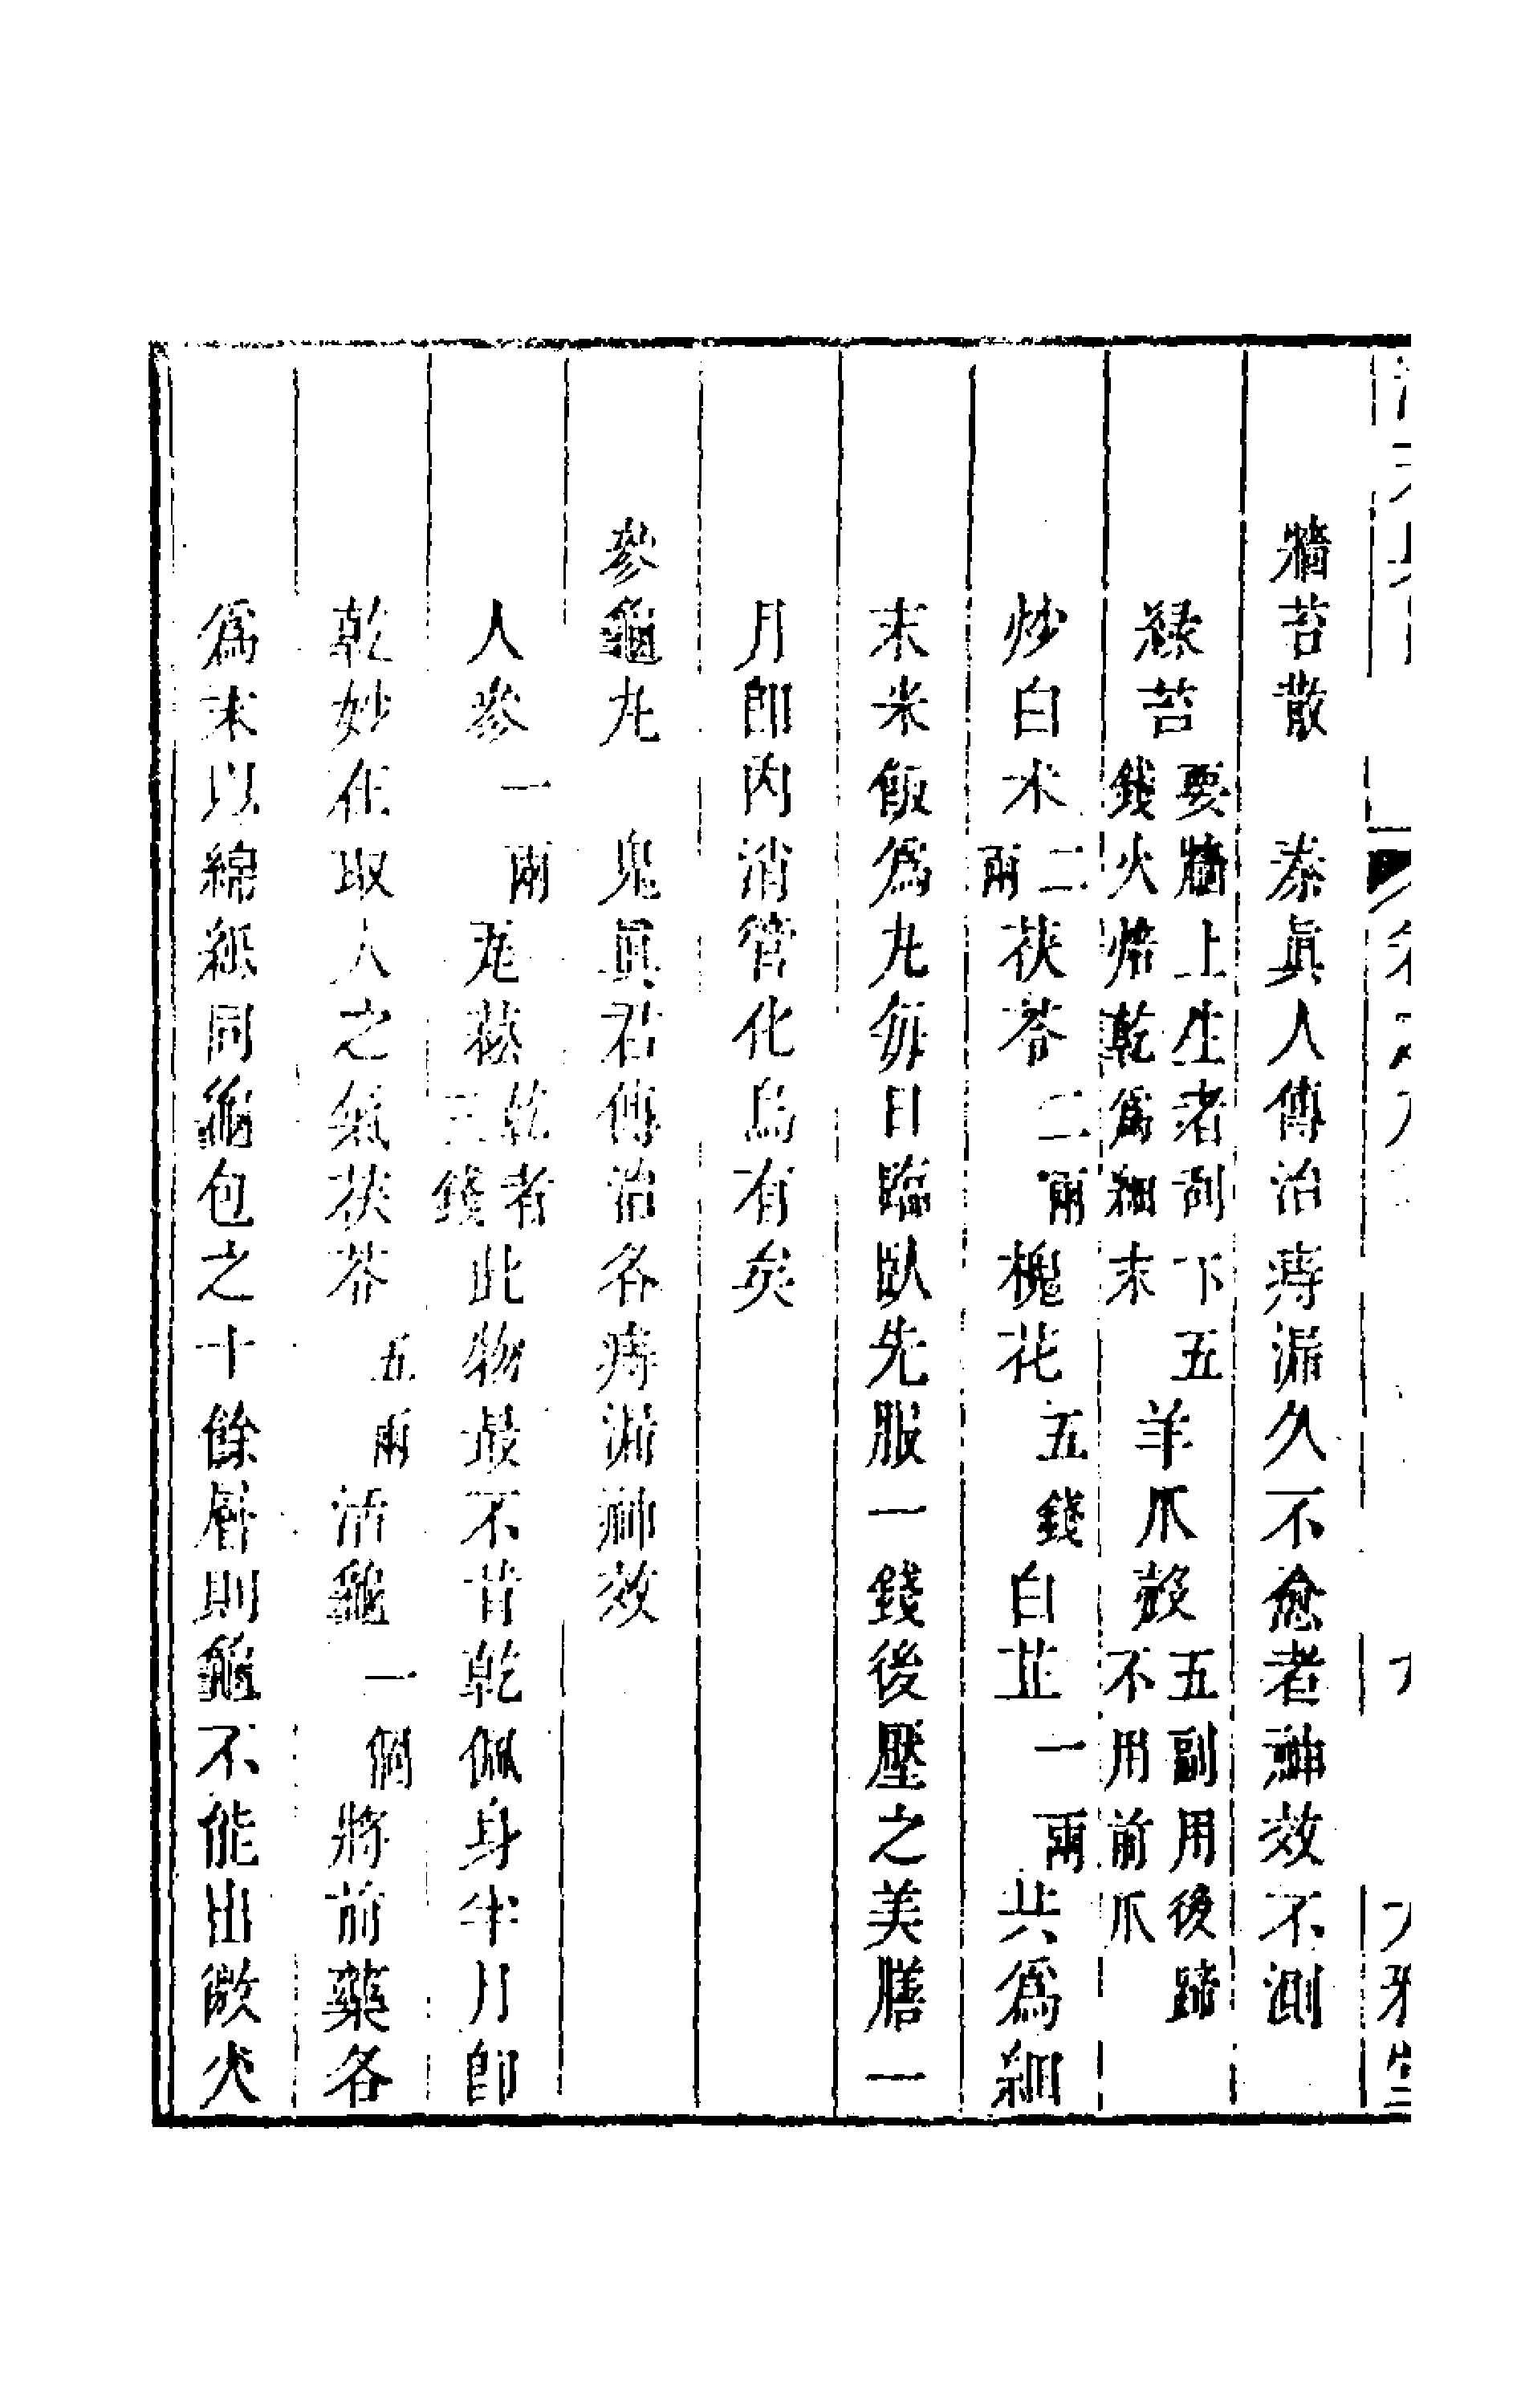 牆苔散　秦真人傳治痔漏久不愈者神效不測
綠苔要牆上生者刮下五錢火焙乾爲細末羊爪殼五副用後蹄不用前爪
炒白朮二兩茯苓二兩槐花五錢白芷一兩共爲細
末米飯爲丸每日臨臥先服一錢後壓之美膳一
月卽內消管化烏有矣
參龜丸　鬼真君傳治各痔漏神效
人參一兩尨菾乾者三錢此物最不肯乾佩身半月卽
乾妙在取人之氣茯苓五兩活龜一個將前藥各
爲末以綿紙同龜包之十餘層則龜不能出微火